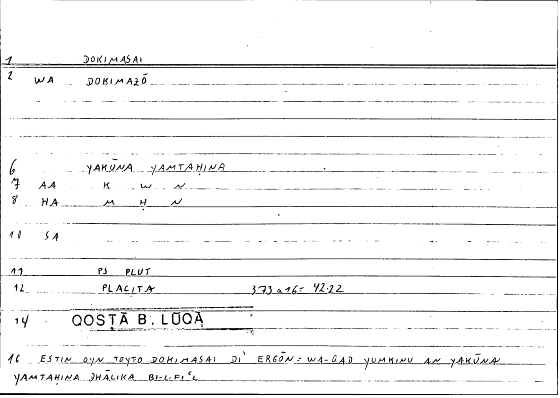 1 DOKIMASAI
2 WA DOKIMAZŌ
6 YAKŪNA YAMTAḤINA
7 AA K W N
8 HA M Ḥ N
10 SA
11 PS PLUT
12 PLACITA 373a16 = 42.22
14 QOSṬĀ B. LŪQĀ
16 ESTIN OYN TOYTO DOKIMASAI DI' ERGŌN = WA-GAD YUMKINU AN YAKŪNA
YAMTAḤINA DHĀLIKA BI-L-FIʿL